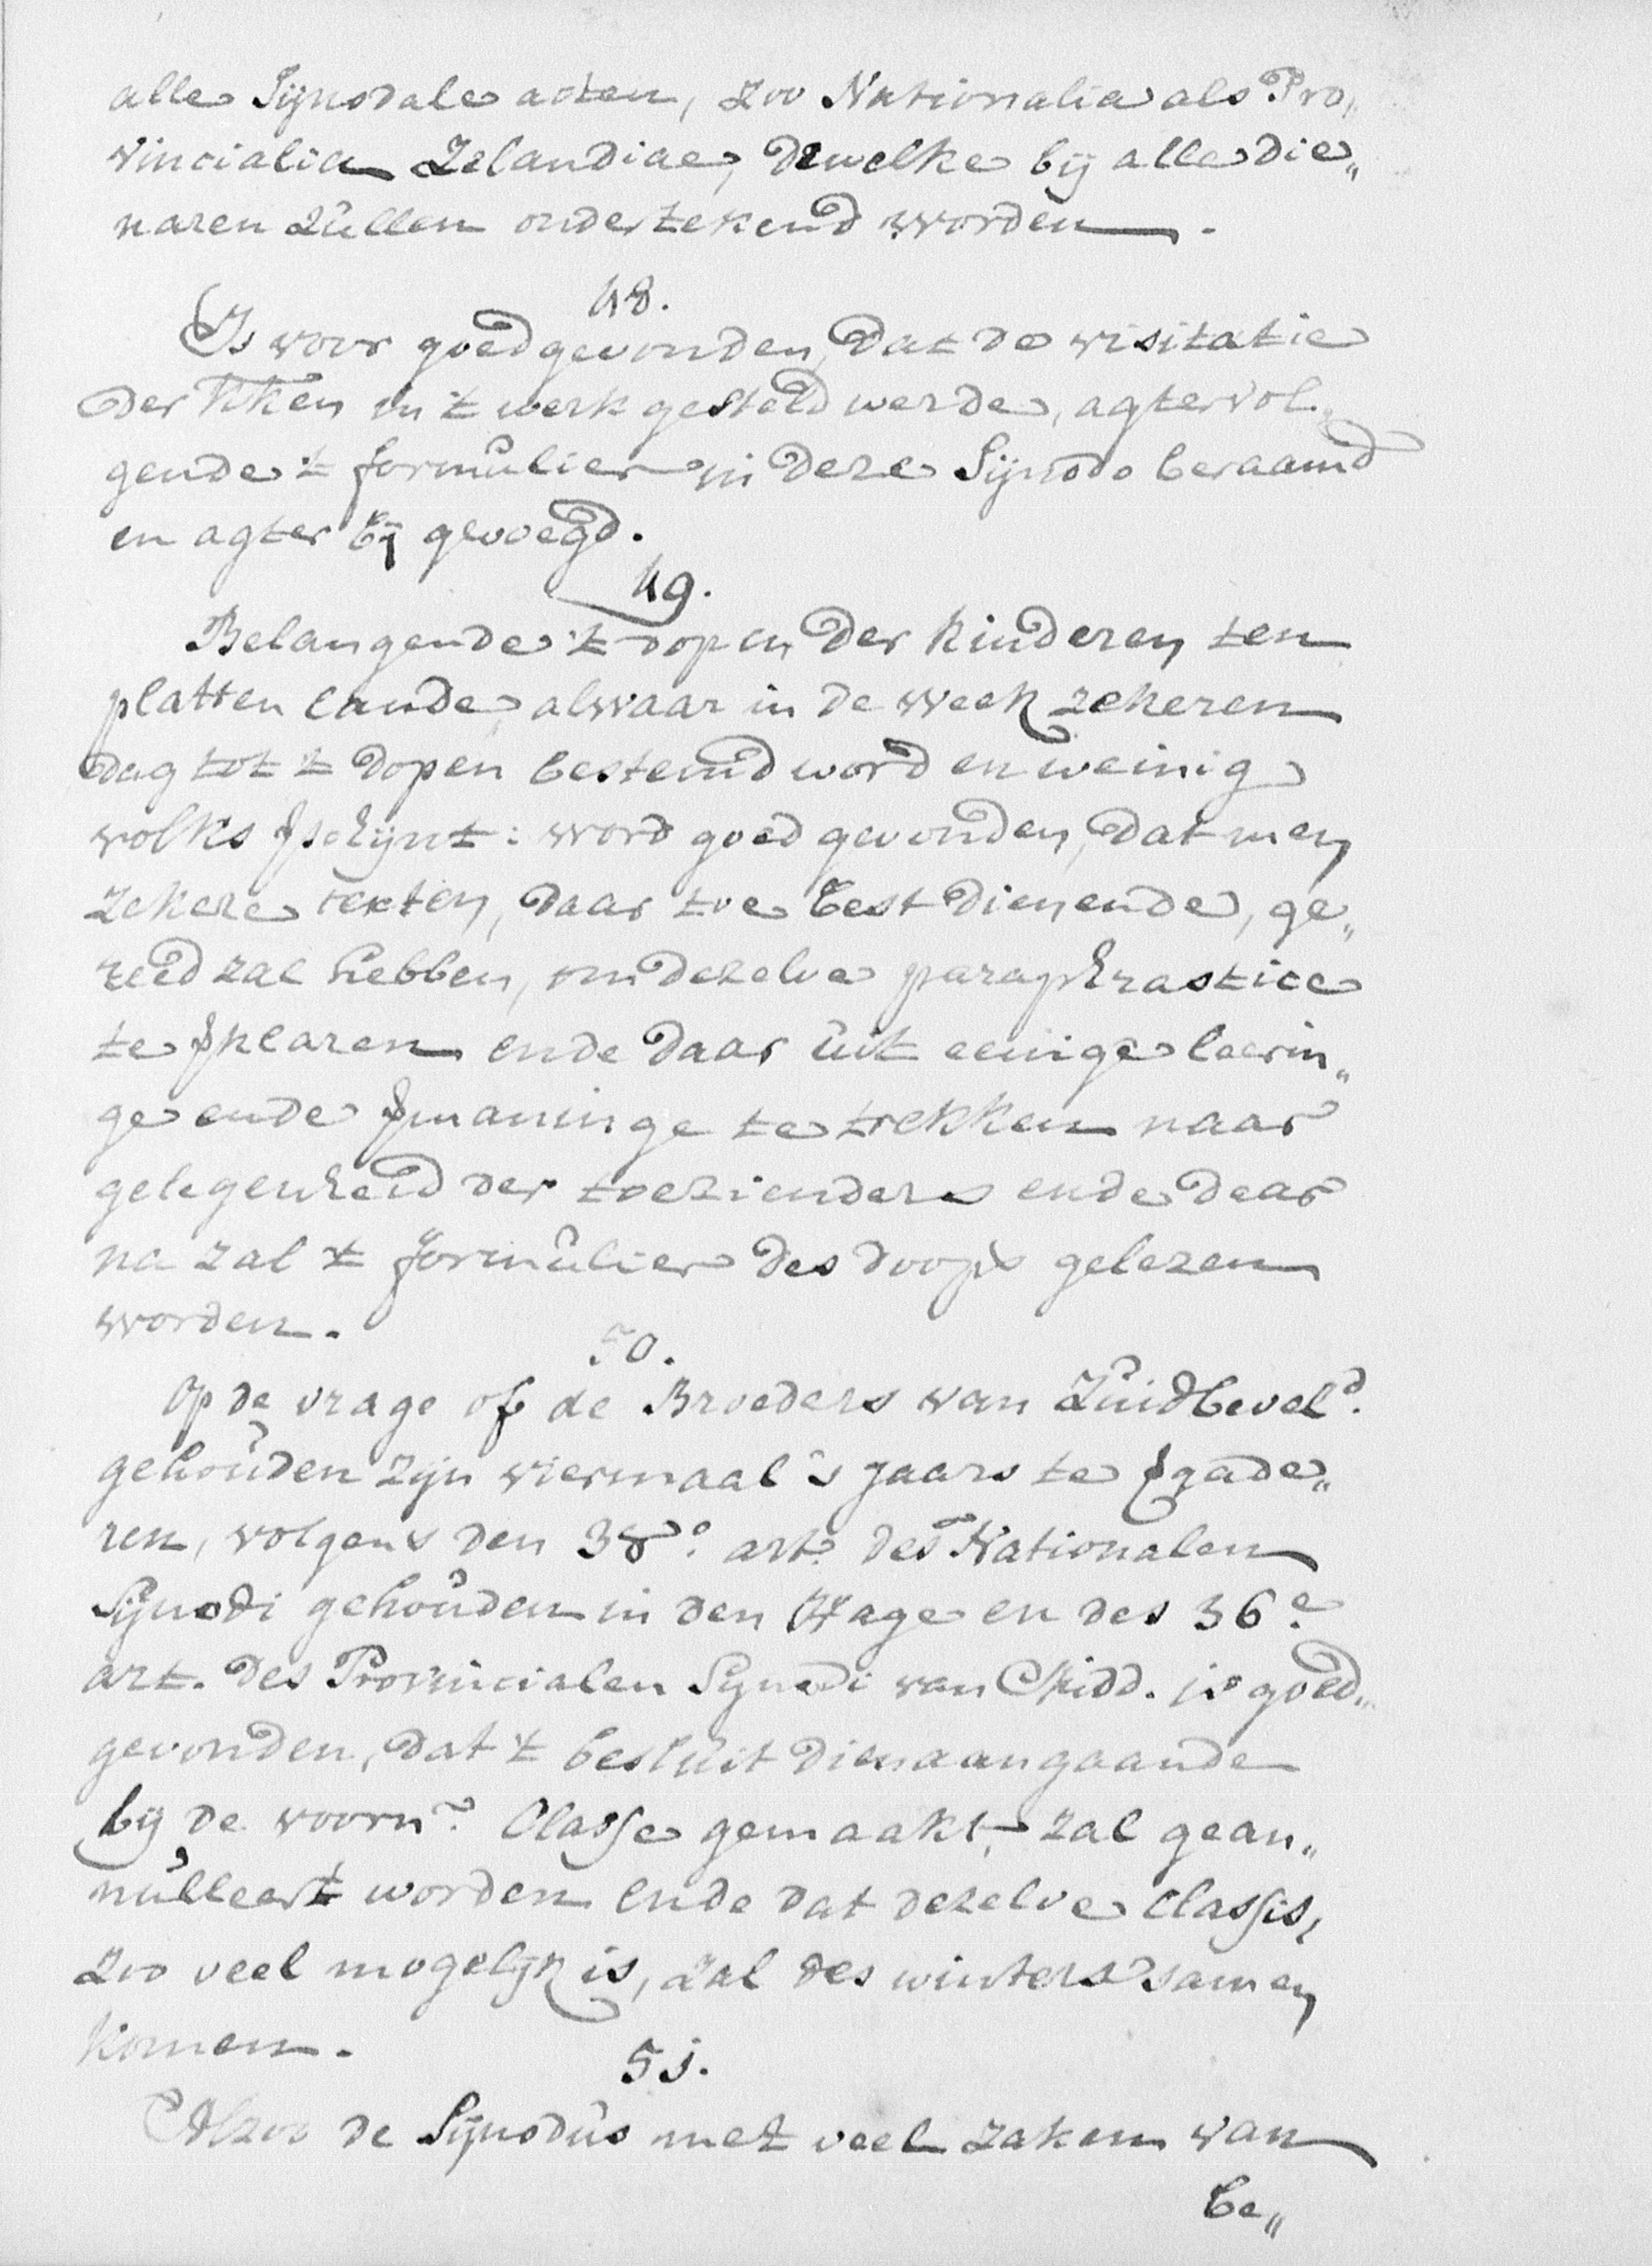 alle Sijnodale acten, zoo Nationalia als Pro„
vincialia Zelandiae, dewelke bij alle die„
naren zullen ondertekend worden.
48.
Is voor goedgevonden, dat de visitatie
der Kken in 't werk gesteld werde, agtervol„
gende 't formulier in deze Sijnodo beraamd
en agter bij gevoegd.
49.
Belangende 't dopen der kinderen ten
platten lande, alwaar in de week zekeren
dag tot 't dopen bestemd word en weinig
volks schijnt: word goed gevonden, dat men
zekere texten, daar toe best dienende, ge„
reed zal hebben, om dezelve paraphrastice
te klaren ende daar uit eenige leerin„
ge ende maninge te trekken naar
gelegenheid der toezienders ende daar
na zal 't formulier des doops gelezen
worden.
50.
Op de vrage of de Broeders van Zuidbevel^d.
gehouden zijn viermaal 's jaars te gade„
ren, volgens den 38^e. art. des Nationalen
Sijnodi gehouden in den Hage en des 36^e.
art. des Provincialen Synodi van Midd. is goed„
gevonden, dat 't besluit dienaangaande
bij de voorn^e. Classe gemaakt, zal gean„
nulleert worden ende dat dezelve Classis,
zoo veel mogelijk is, zal des winters samen
komen.
51.
Alzoo de Sijnodus met veel zaken van
be„